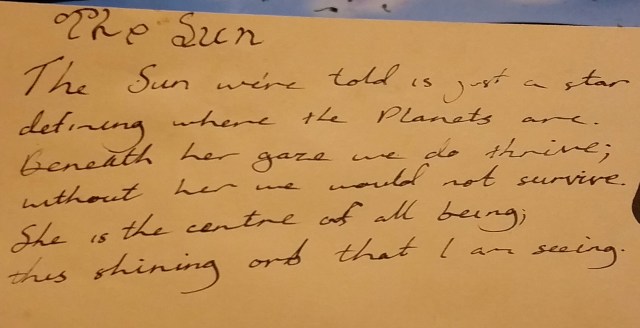 The Sun
The Sun we're told is just a star
defining where the Planets are.
Beneath her gaze we do thrive;
without her we would not survive.
She is the centre of all being;
this shining orb that I am seeing.